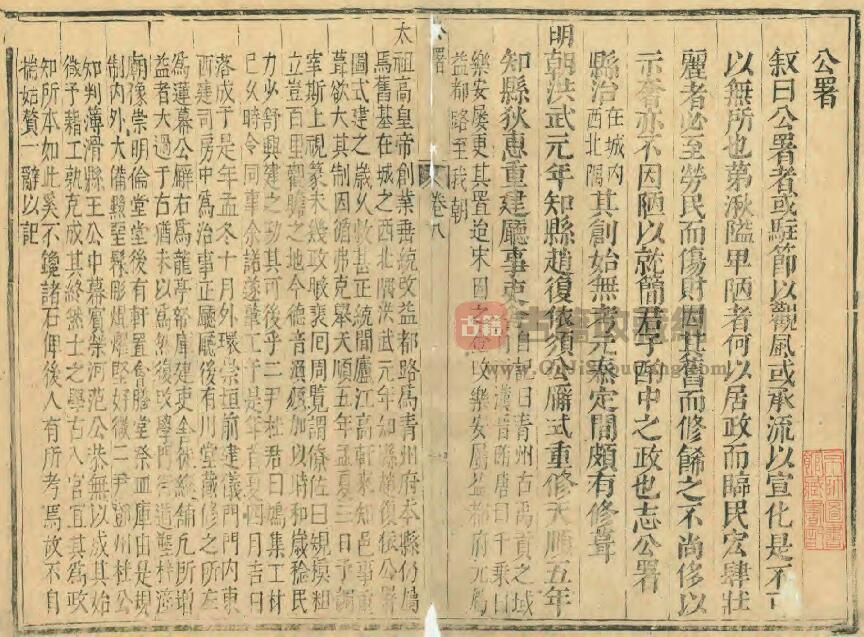 公署
叙曰公署者或駐節以觀風或承流以宣化是不可
以無所也第湫隘卑陋者何以居政而臨民宏肆壯
麗者必至勞民而傷財因其舊而修餙之不尚侈以
示奢亦不因陋以就簡君子酌中之政也志公署
縣治在城内西北隅其創始無考元泰定間頗有修葺
明朝洪武元年知縣趙復依頒公廨式重修天順五年
知縣狄惠重建廳事吏 自記曰青州古禹貢之域
漢晉隋唐曰千乗曰
樂安屢更其置迨宋因之 改樂安屬益都府元爲
益都路至我朝
公署
卷八
太祖高皇帝創業垂統改益都路爲青州府本縣仍屬
焉舊基在城之西北隅洪武元年知縣趙復依公廨
圖式建之歲久攸甚正統間廬江高軒來知邑事重
葺欲大其制因循弗克舉天順五年孟夏三日予
宰斯上視篆未幾政暇裵囘周覽謂僚佐曰規模粗
立豈百里觀瞻之地今德音 加以時和歲稔民
力必舒興建之功其可後乎二尹杜君曰鳩集工材
已久時令同事余諾遂葦工于是年首夏四月吉日
落成于是年孟冬十月外環崇垣前建儀門門内東
西建司房中爲治事正廳廳後有川堂藏修之所左
爲蓮幕公廨右爲龍亭帑庫建吏舍 鋪凢所增
益者大過于右猶未以爲然復改學門 道塑梓潼
廟像崇明倫堂堂後有軒置會膳堂祭血庫由是規
制内外大備黝堊髹彫煥爛堅好微二尹鄧州杜公
知判薄滑縣王公中幕賓榮河范公恭無以成其始
微予藉工孰克成其終然士之學古入官宜其爲政
知所本如此奚不鑱諸石俾後人有所考焉故不自
揣始贅一辭以記
古籍
www.GuJiShuWang.com